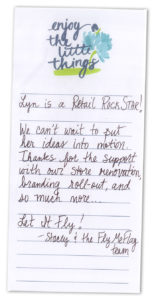 enjoy
the
little
things
Lyn is a Retail Rock Star!
We can't wait to put
her ideas into motion.
Thanks for the support
with our store renovation,
branding roll-out, and
so much more...
Let It Fly!
- Stacey & the Fly Me Flag
team